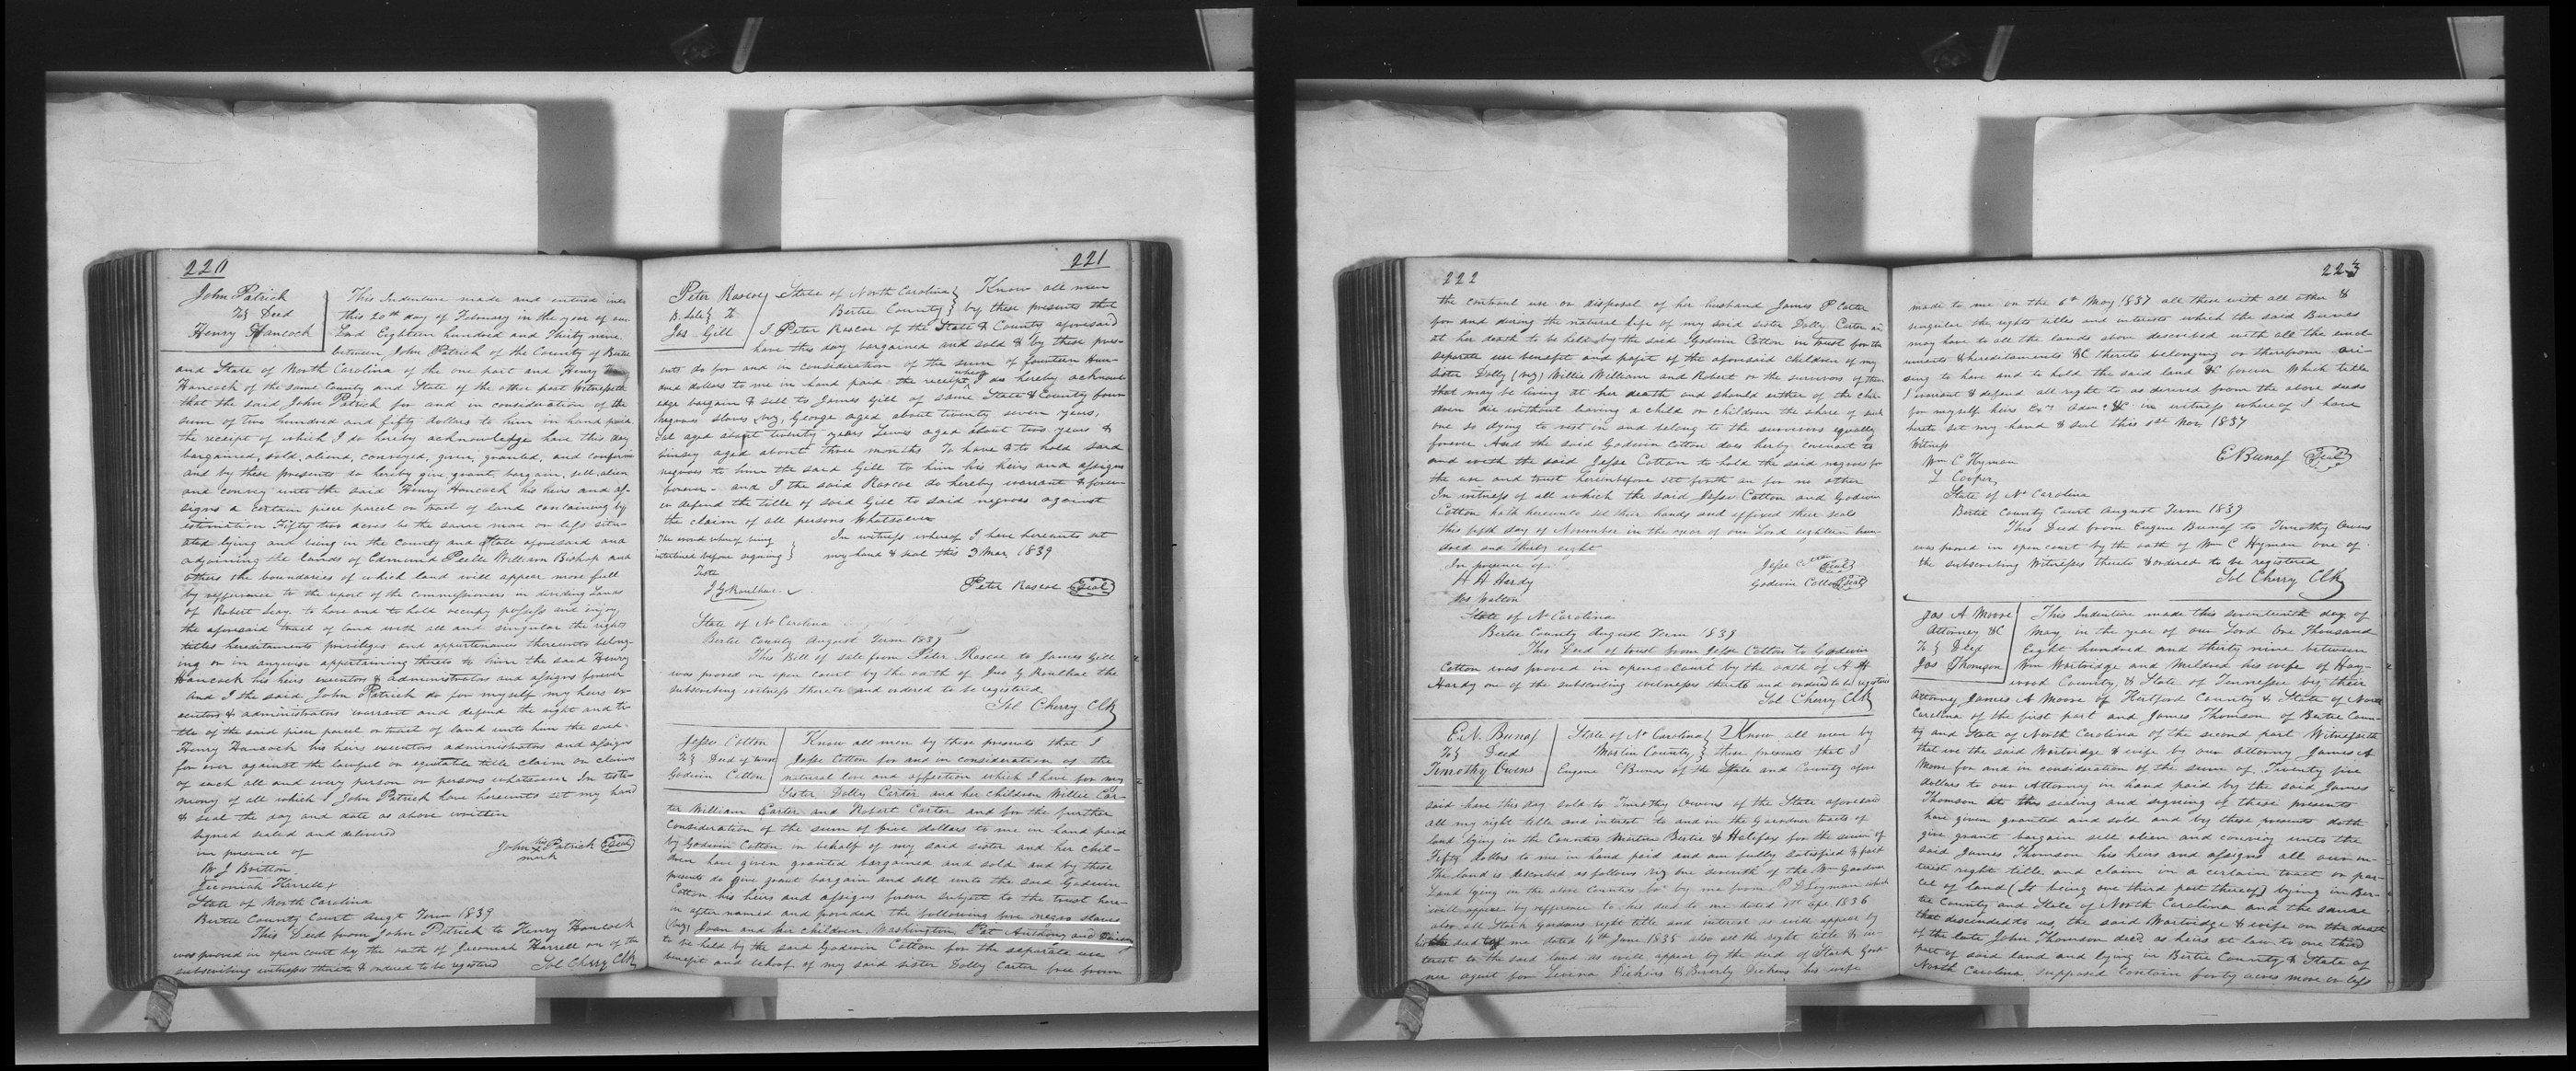 220
John Patrick
To } Deed
Henry Hancock
This Indenture made and entered into
this 20th day of February in the year of our
Lord Eighteen hundred and Thirty nine
between John Patrick of the County of Bertie
and State of North Carolina of the one part and Henry
Hancock of the same County and State of the other part Witnesseth
that the said John Patrick for and in consideration of the
sum of two hundred and fifty dollars to him in hand paid
the receipt of which I do hereby acknowledge have this day
bargained, sold, aliend, conveyed, given, granted, and confirm
and by these presents do hereby give, grant, bargain, sell, alien
and convey unto the said Henry Hancock his heirs and as-
signs a certain piece parcel or tract of land containing by
estimation Fifty two acres be the same more or less situ-
ated lying and being in the County and State aforesaid and
adjoining the lands of Edmund Peele William Bishop and
others the boundaries of which land will appear more full
by refferance to the report of the commissioners in dividing Lands
of Robert Seay. to have and to hold occupy possess and enjoy
the aforesaid tract of land with all and singular the rights
titles hereditaments privileges and appurtenances thereunto belong-
ing or in anywise appertaining thereto to him the said Henry
Hancock his heirs executors & administrators and assigns forever
And I the said John Patrick do for myself my heirs ex-
ecutors & administrators warrant and defend the right and ti-
tle of the said piece parcel or tract of land unto him the said
Henry Hancock his heirs executors administrators and assigns
for ever against the lawful or equitable title claim or claims
of each all and every person or persons whatsoever In testi-
mony of all which I John Patrick have hereunto set my hand
& seal the day and date as above written
Signed sealed and delivered
in presence of
John his x mark Patrick Seal
W J Britton
Jeremiah Harrell
State of North Carolina
Bertie County Court Augt Term 1839
This Deed from John Patrick to Henry Hancock
was proved in open court by the oath of Jeremiah Harrell on of the
subscribing witnesses thereto & ordered to be registered Sol Cherry Clk
221
Peter Rascoe
B. Sale } To
Jas Gill
State of North Carolina } Know all men
Bertie County } by these presents that
I Peter Rascoe of the State & County aforesaid
have this day bargained and sold & by these pres-
ents do for and in consideration of the sum of fourteen Hun-
dred dollars to me in hand paid the receipt whereof I do hereby acknowl
edge bargain & sell to James Gill of same State & County four
negroes slaves viz, George aged about twenty seven years,
aged about twenty years Lewis aged about two years &
aged about three months To have & to hold said
negroes to him the said Gill to him his heirs and assigns
forever - and I the said Rascoe do hereby warrant & forev-
er defend the title of said Gill to said negroes against
the claim of all persons whatsoever
The word whereof being
interlined before signing }
In witness whereof I have hereunto set
my hand & seal this 3 Mar 1839
Teste
J G Roulhac
Peter Rascoe Seal
State of No Carolina
Bertie County August Term 1839
This Bill of sale from Peter Rascoe to James Gill
was proved on open court by the oath of Jno G Roulhac the
subscribing witness thereto and ordered to be registered
Sol Cherry Clk
Jesse Cotton
To } Deed of trust
Godwin Cotton
Know all men by these presents that I
Jesse Cotton for and in consideration of the
natural love and affection which I have for my
Sister Dolly Carter and her children Willie Car-
ter William Carter and Robert Carter and for the further
consideration of the sum of five dollars to me in hand paid
by Godwin Cotton in behalf of my said sister and her chil-
dren have given granted bargained and sold and by these
presents do give grant bargain and sell unto the said Godwin
Cotton his heirs and assigns forever subject to the trust here-
in after named and provided the following five negro slaves
(viz) and her children, Washington Pat Anthony and
to be held by the said Godwin Cotton for the separate use
benefit and behoof of my said sister Dolly Carter free from
222
the controul use or disposal of her husband James P Carter
for and during the natural life of my said sister Dolly Carter and
at her death to be held by the said Godwin Cotton in trust for the
separate use benefit and profit of the aforesaid children of my
sister Dolly (viz) Willie William and Robert or the survivors of them
that may be living at her death and should either of the chil-
dren die without leaving a child or children the share of such
one so dying to vest in and belong to the survivors equally
forever And the said Godwin Cotton does herby covenant to
and with the said Jesse Cotton to hold the said negroes for
the use and trust hereinbefore set forth an for no other
In witness of all which the said Jesse Cotton and Godwin
Cotton hath hereunto set their hands and affixed their seals
this fifth day of November in the year of our Lord eighteen hun-
dred and thirty eight
In presence of
Jesse Cotton Seal
H H Hardy
Godwin Cotton Seal
Jos Walton
State of No Carolina
Bertie County August Term 1839
This Deed of trust from Jesse Cotton to Godwin
Cotton was proved in open court by the oath of H H
Hardy one of the subscribing witnesses thereto and ordered to be registered
Sol Cherry Clk
E. N. Bunas
To } Deed
Timothy Owens
State of No Carolina } Know all men by
Martin County } these presents that I
Eugene Bunas of the State and County afore
said have this day sold to Timothy Owens of the State aforesaid
all my right title and interest to and in the Gardner tracts of
land lying in the Counties Martin Bertie & Halifax for the sum of
Fifty dollars to me in hand paid and am fully satisfied &
The land is described as follows viz one seventh of the Wm Gardner
Land lying in the above Counties by me from P D which
will appear by refference to his deed to me dated Sept 1836
also all Stark Gardners right title and interest as will appear by
his deed to me dated 4th June 1835 also all the right title & in-
terest to the said land as will appear by the deed of Stark Gard
ner agent for Levina Dickens & Beverly Dickens his wife
223
made to me on the 6th May 1837 all these with all other &
singular the rights titles and interests which the said Bunas
may have to all the lands above described with all the
& hereditaments &C thereto belonging or therefrom ari-
sing to have and to hold the said land &C forever Which title
I warrant & defend all right to as derived from the above deeds
for myself heirs Exrs Admr &C in witness whereof I have
hereto set my hand & seal this 1st Nov 1837
Witness
E Bunas Seal
Wm C Hyman
L Cooper
State of No Carolina
Bertie County Court August Term 1839
This Deed from Eugene Bunas to Timothy Owens
was proved in open court by the oath of Wm C Hyman one of
the subscribing Witnesses thereto & ordered to be registered
Sol Cherry Clk
Jas A Moore
Attorney &C
To } Deed
Jas Thomson
This Indenture made this seventeenth day of
May in the year of our Lord One Thousand
Eight hundred and thirty nine between
Wm Wortridge and Mildred his wife of Hay-
wood County & State of Tennessee by their
Attorney James A Moore of Hertford County & State of North
Carolina of the first part and James Thomson of Bertie Coun-
ty and State of North Carolina of the second part Witnesseth
that we the said Wortridge & wife by our attorney James A
Moore for and in consideration of the sum of Twenty five
dollars to our Attorney in hand paid by the said James
Thomson at the sealing and signing of these presents
have given granted and sold and by these presents doth
give grant bargain sell alien and convey unto the
said James Thomson his heirs and assigns all our in-
terest right title and claim in a certain tract or par-
cel of land (It being one third part thereof) lying in Ber-
tie County and State of North Carolina and the same
that descended to us the said Wortridge & wife on the death
of the late John Thomson decd as heirs at law to one third
part of said land and lying in Bertie County & State of
North Carolina supposed contain forty acres more or less